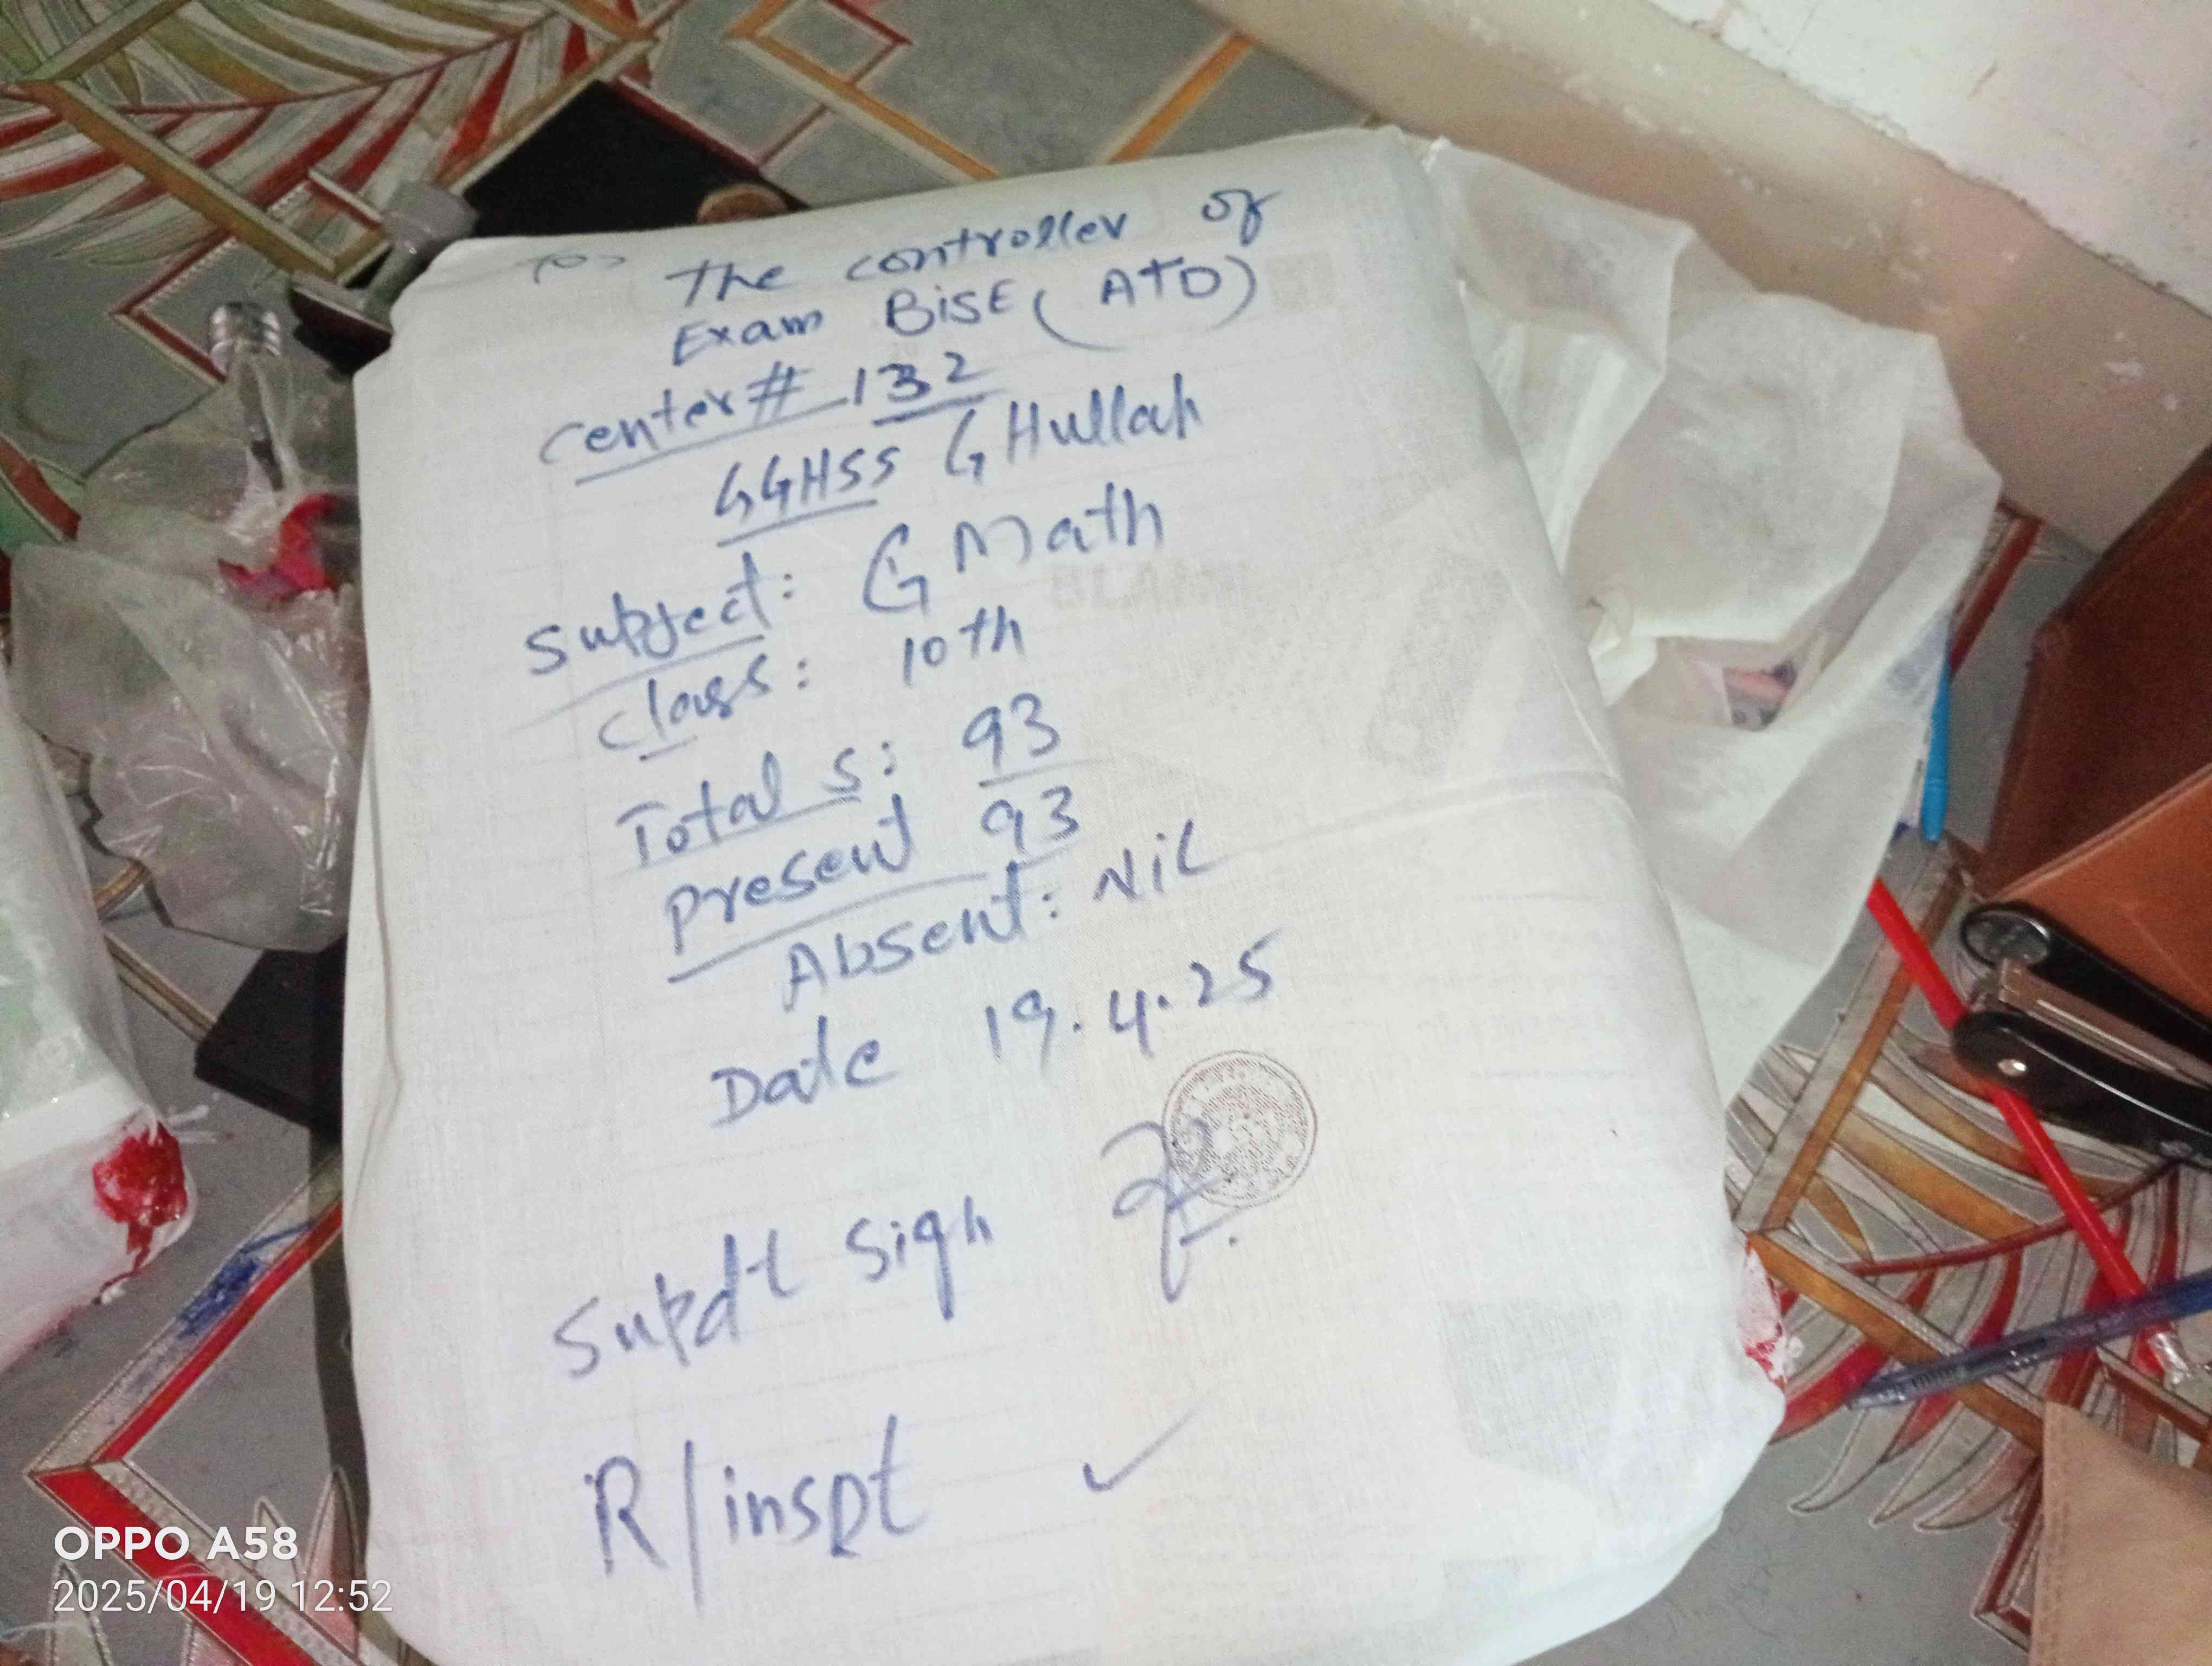 To,
The controller of
Exam BiSE (ATD)
Center # 132
GGHSS GHullah
Subject: G Math
Class: 10th
Total s: 93
Present 93
Absent: NiL
Date 19.4.25
Supdt Sign
R/inspt ✓
BLAN
OPPO A58
2025/04/19 12:52